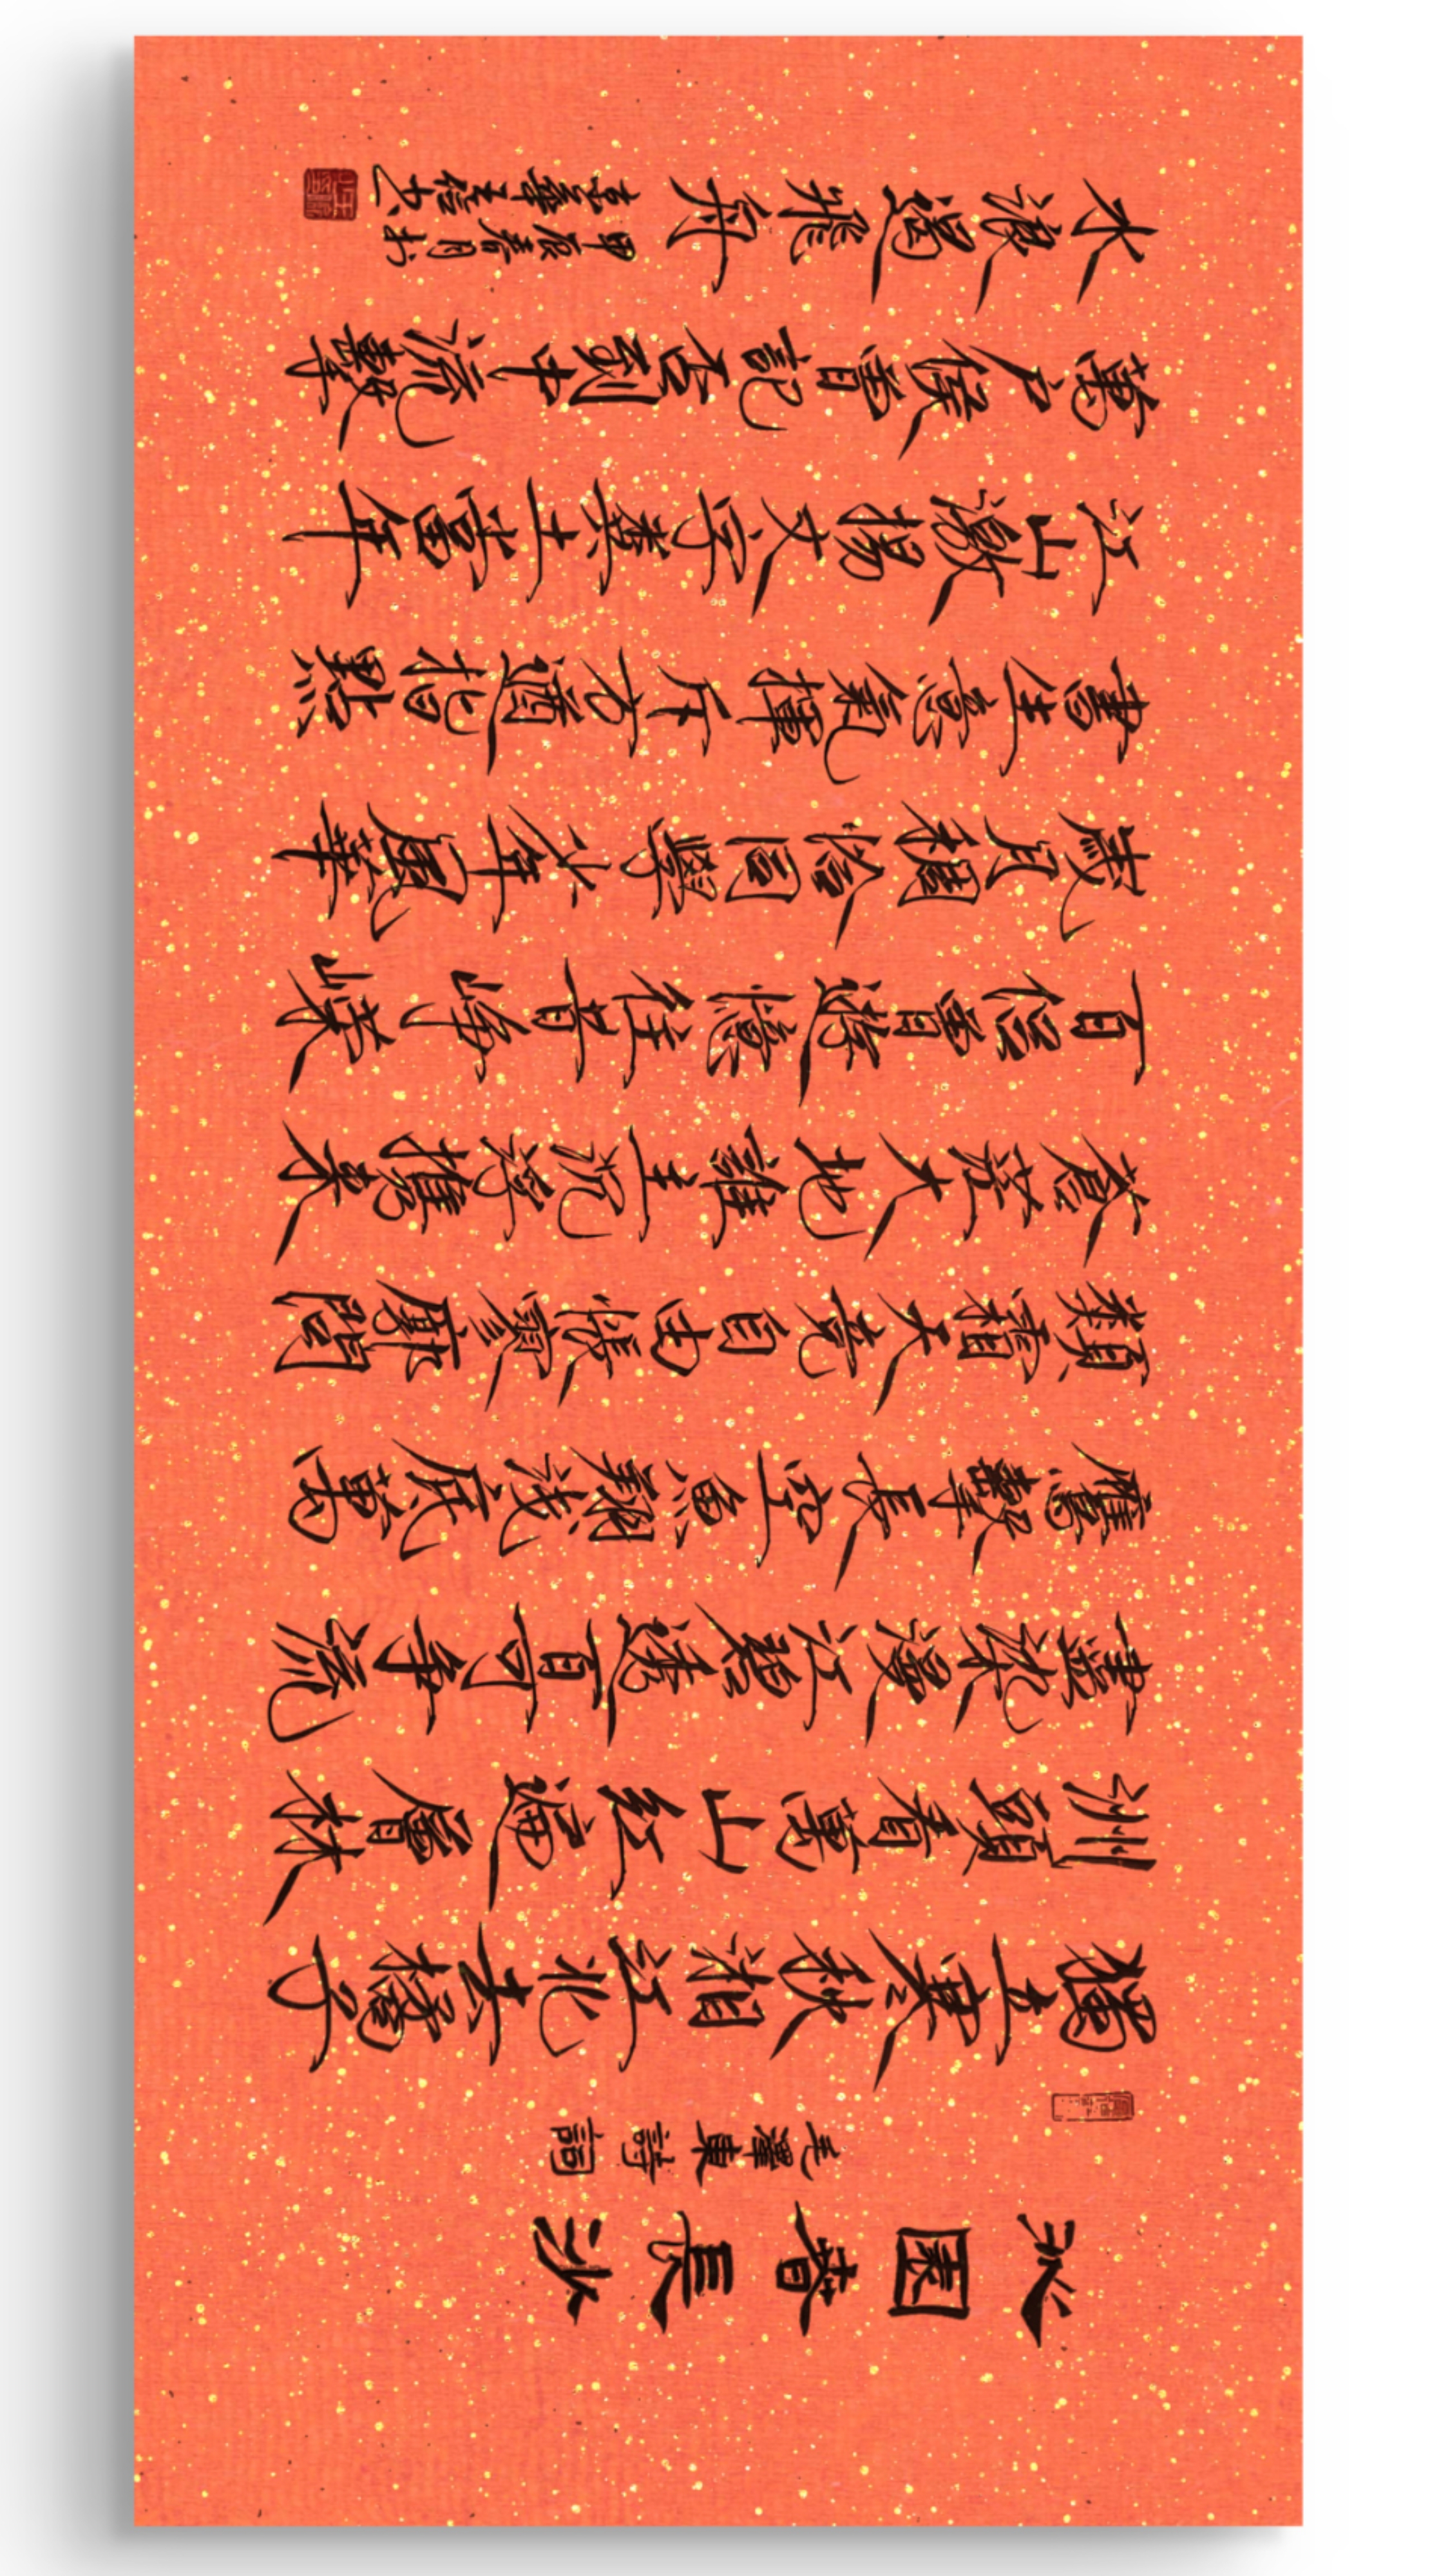 沁園春長沙
毛澤東詩詞
獨立寒秋湘江北去橘子
洲頭看萬山紅遍層林
盡染漫江碧透百可争流
鷹擊長空魚翔淺底萬
類霜天競自由悵寥廓問
蒼茫大地誰主沉浮攜來
百侶曾遊憶往昔崢嶸
歲月稠恰同學少年風華
書生意氣揮斥方遒指點
江山激揚文字糞土當年
萬户侯曾記否到中流擊
水浪遏飛舟
甲辰春月於
京華王信